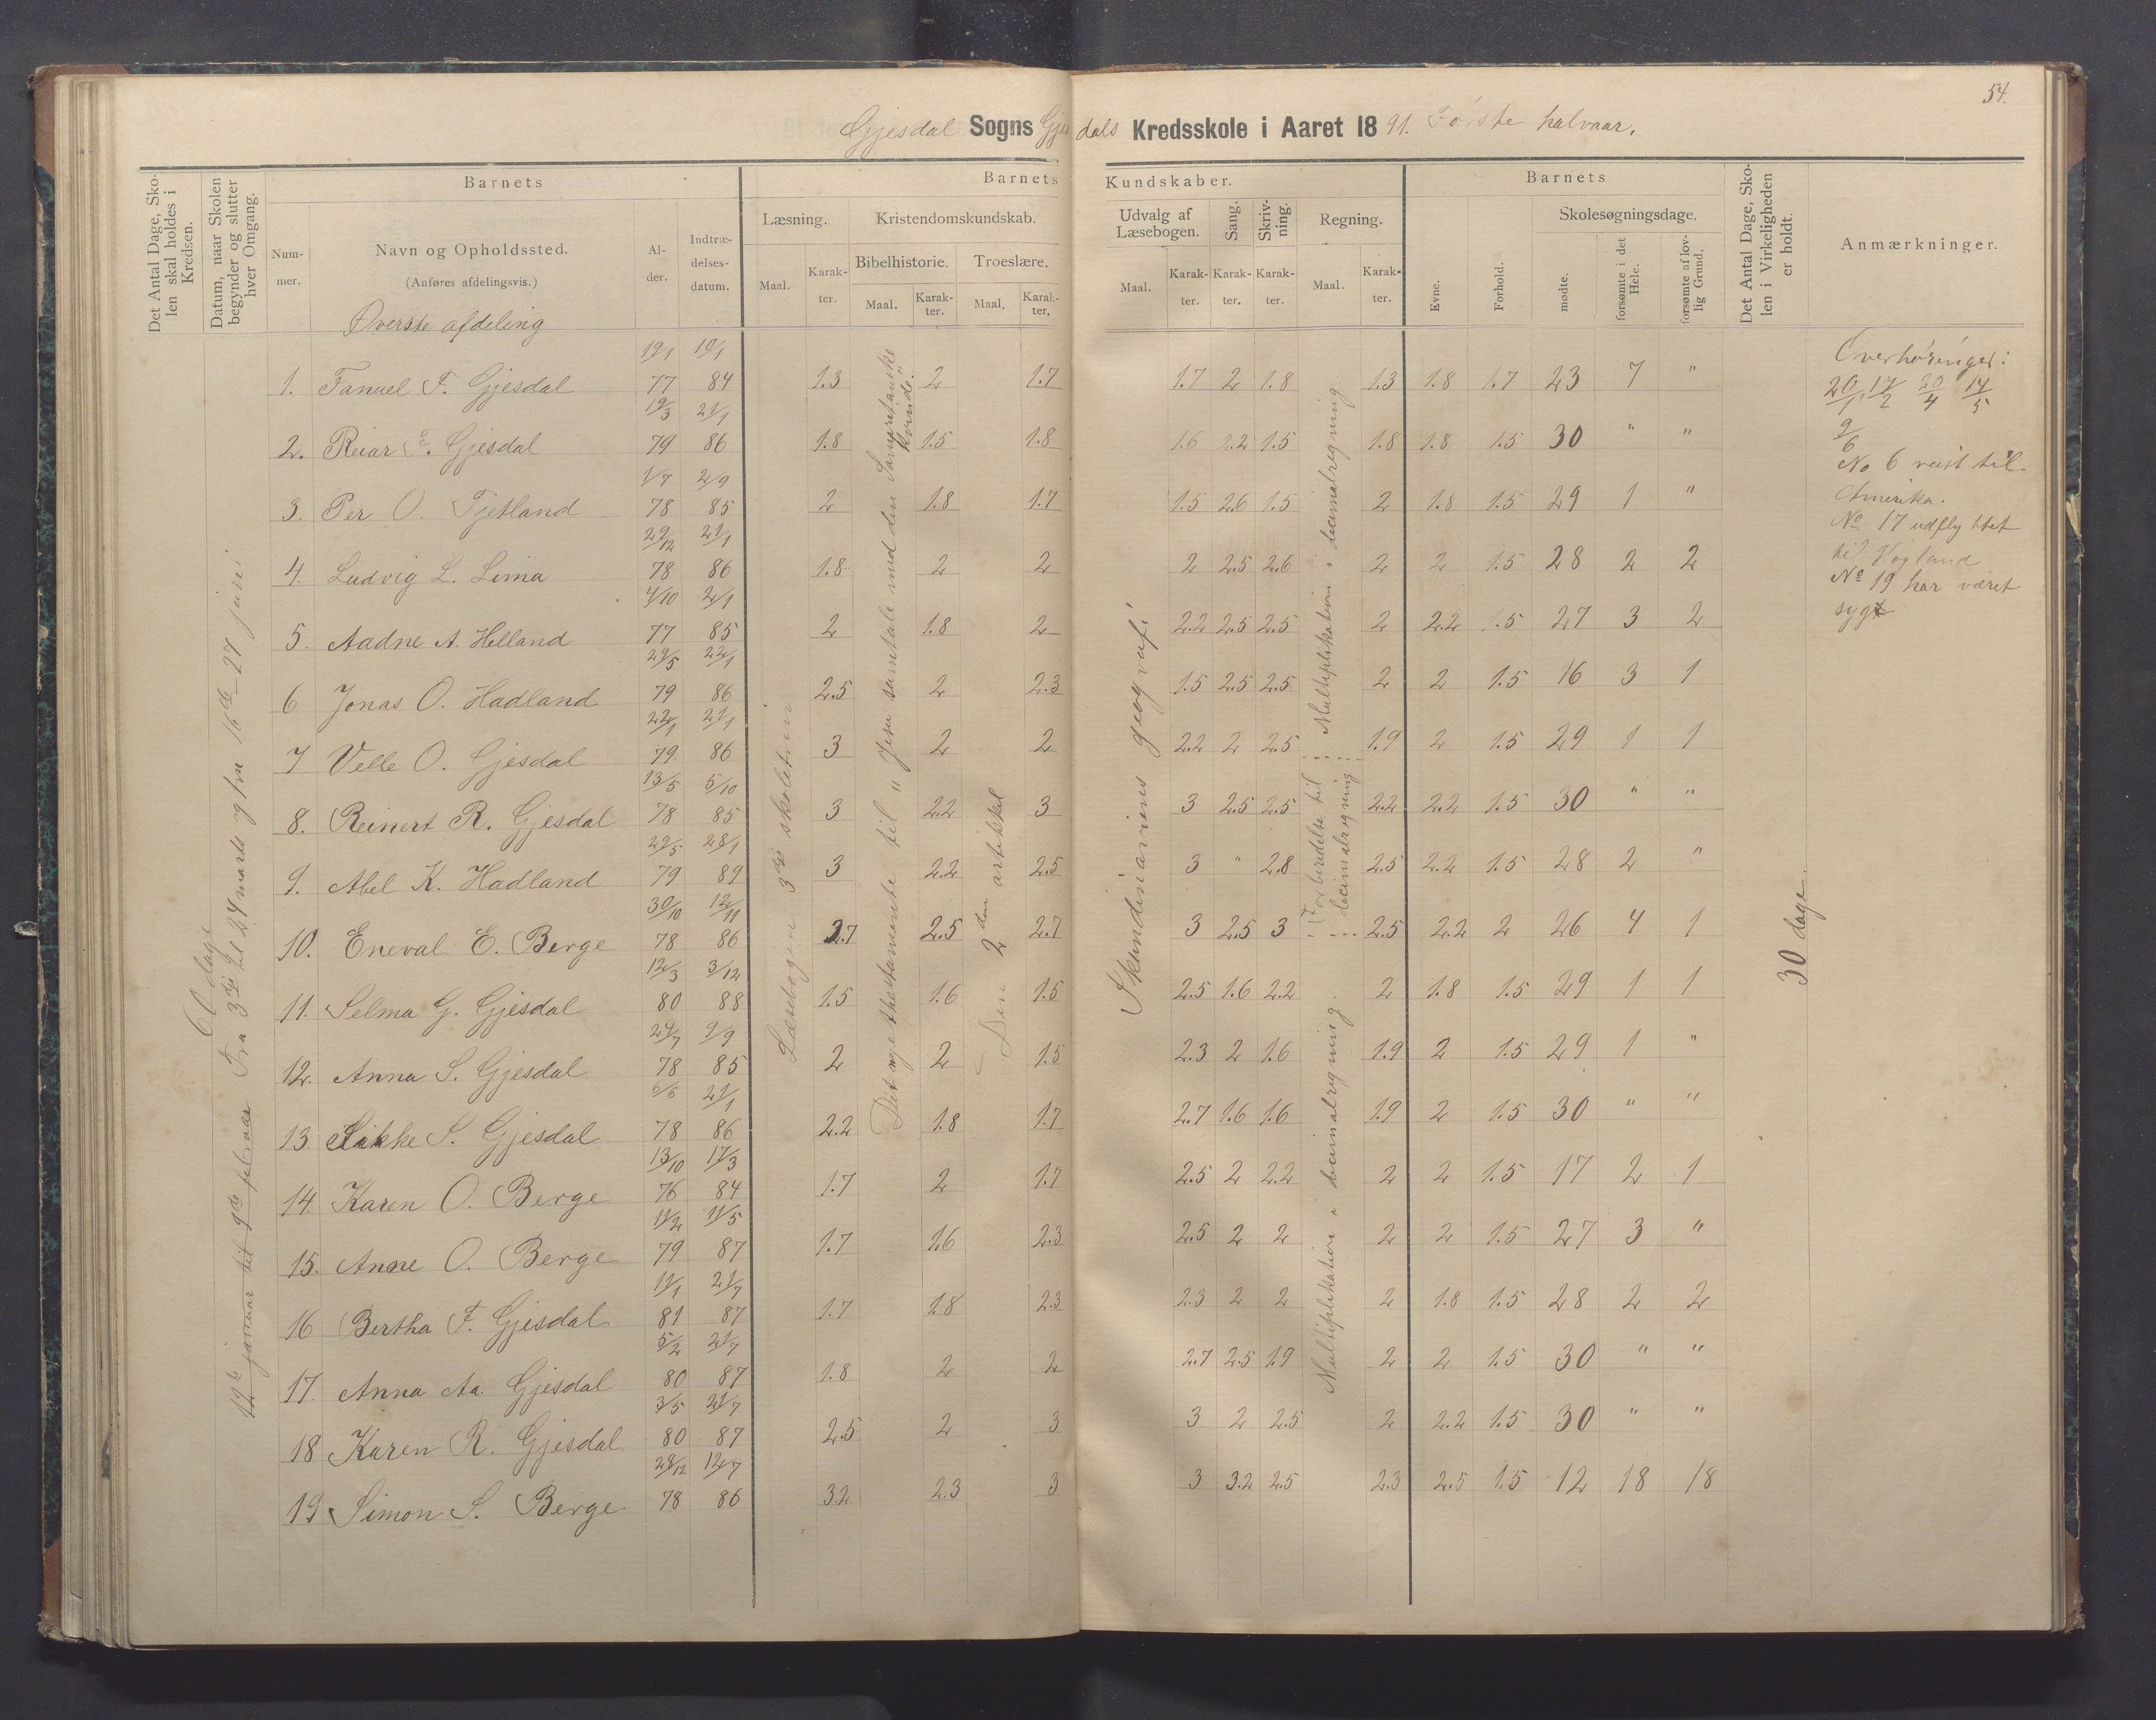 54.
Gjesdal Sogns Gjesdals Kredsskole i Aaret 1891. Første halvaar.
Det Antal Dage, Skolen skal holdes i Kredsen.
Datum, naar Skolen begynder og slutter hver Omgang.
Barnets
Nummer.
Navn og Opholdssted.
(Anføres afdelingsvis.)
Alder.
Indtrædelsesdatum.
Barnets Kundskaber.
Læsning.
Maal.
Karakter.
Kristendomskundskab.
Bibelhistorie.
Maal.
Karakter.
Troeslære.
Maal.
Karakter.
Udvalg af Læsebogen.
Maal.
Karakter.
Sang.
Karakter.
Skrivning.
Karakter.
Regning.
Maal.
Karakter.
Barnets
Evne.
Forhold.
Skolesøgningsdage.
mødte.
forsømte i det Hele.
forsømte af lovlig Grund.
Det Antal Dage, Skolen i Virkeligheden er holdt.
Anmærkninger.
Øverste afdeling
1. Fanuel F. Gjesdal 19/1 77 19/1 84 1.3 2 1.7 1.7 2 1.8 1.3 1.8 1.7 23 7 "
2. Reiar F. Gjesdal 19/3 79 21/1 86 1.8 1.5 1.8 1.6 2.2 1.5 1.8 1.8 1.5 30 " "
3. Per O. Tjetland 1/7 78 2/9 85 2 1.8 1.7 1.5 2.6 1.5 2 1.8 1.5 29 1 "
4. Ludvig L. Lima 29/12 78 21/1 86 1.8 2 2 2 2.5 2.6 2 2 1.5 28 2 2
5. Aadne A. Helland 4/10 77 2/1 85 2 1.8 2 2.2 2.5 2.5 2 2.2 1.5 27 3 2
6 Jonas O. Hadland 29/5 79 22/1 86 2.5 2 2.3 1.5 2.5 2.5 2 2 1.5 16 3 1
7 Velle O. Gjesdal 22/1 79 21/1 86 3 2 2 2.2 2 2.5 1.9 2 1.5 29 1 1
8. Reinert R. Gjesdal 13/5 78 5/10 85 3 2.2 3 3 2.5 2.5 2.2 2.2 1.5 30 " "
9. Abel K. Hadland 29/5 79 28/1 89 3 2.2 2.5 3 " 2.8 2.5 2.2 1.5 28 2 "
10. Eneval E. Berge 30/10 78 12/11 86 2.7 2.5 2.7 3 2.5 3 2.5 2.2 2 26 4 1
11. Selma G. Gjesdal 12/3 80 3/12 88 1.5 1.6 1.5 2.5 1.6 2.2 2 1.8 1.5 29 1 1
12. Anna S. Gjesdal 24/7 78 9/9 85 2 2 1.5 2.3 2 1.6 1.9 2 1.5 29 1 "
13. Sikke S. Gjesdal 6/6 78 21/1 86 2.2 1.8 1.7 2.7 1.6 1.6 1.9 2 1.5 30 " "
14. Karen O. Berge 13/10 76 17/3 84 1.7 2 1.7 2.5 2 2.2 2 2 1.5 17 2 1
15. Anne O. Berge 11/2 79 11/5 87 1.7 1.6 2.3 2.5 2 2 2 2 1.5 27 3 "
16 Bertha F. Gjesdal 11/1 81 21/7 87 1.7 1.8 2.3 2.3 2 2 2 1.8 1.5 28 2 2
17. Anna Aa Gjesdal 5/2 80 21/7 87 1.8 2 2 2.7 2.5 1.9 2 2 1.5 30 " "
18 Karen R. Gjesdal 3/5 80 21/7 87 2.5 2 3 3 2 2.5 2 2.2 1.5 30 " "
19 Simon S. Berge 28/12 78 12/7 86 3.2 2.3 3 3 3.2 2.5 2.3 2.5 1.5 12 18 18
60 dage
12te januar til 9de februar Fra 3die til 24 marts og fra 16de – 27 juni
Læsebogen 3die skoletrin
Det nye thestamente til "Jesu samtale med den Samaritanske kvinde".
Den 2den artikkel
Skandinaviens geografi
Multiplikation i decimalregning
Forberedelse til decimalregning
Multiplikation i decimalregning.
30 dage.
Overhøringer:
20/1 17/2 20/4 14/5
9/6
No 6 reist til
Amerika.
No 17 udflyttet
til Høgland
No 19 har været
syg